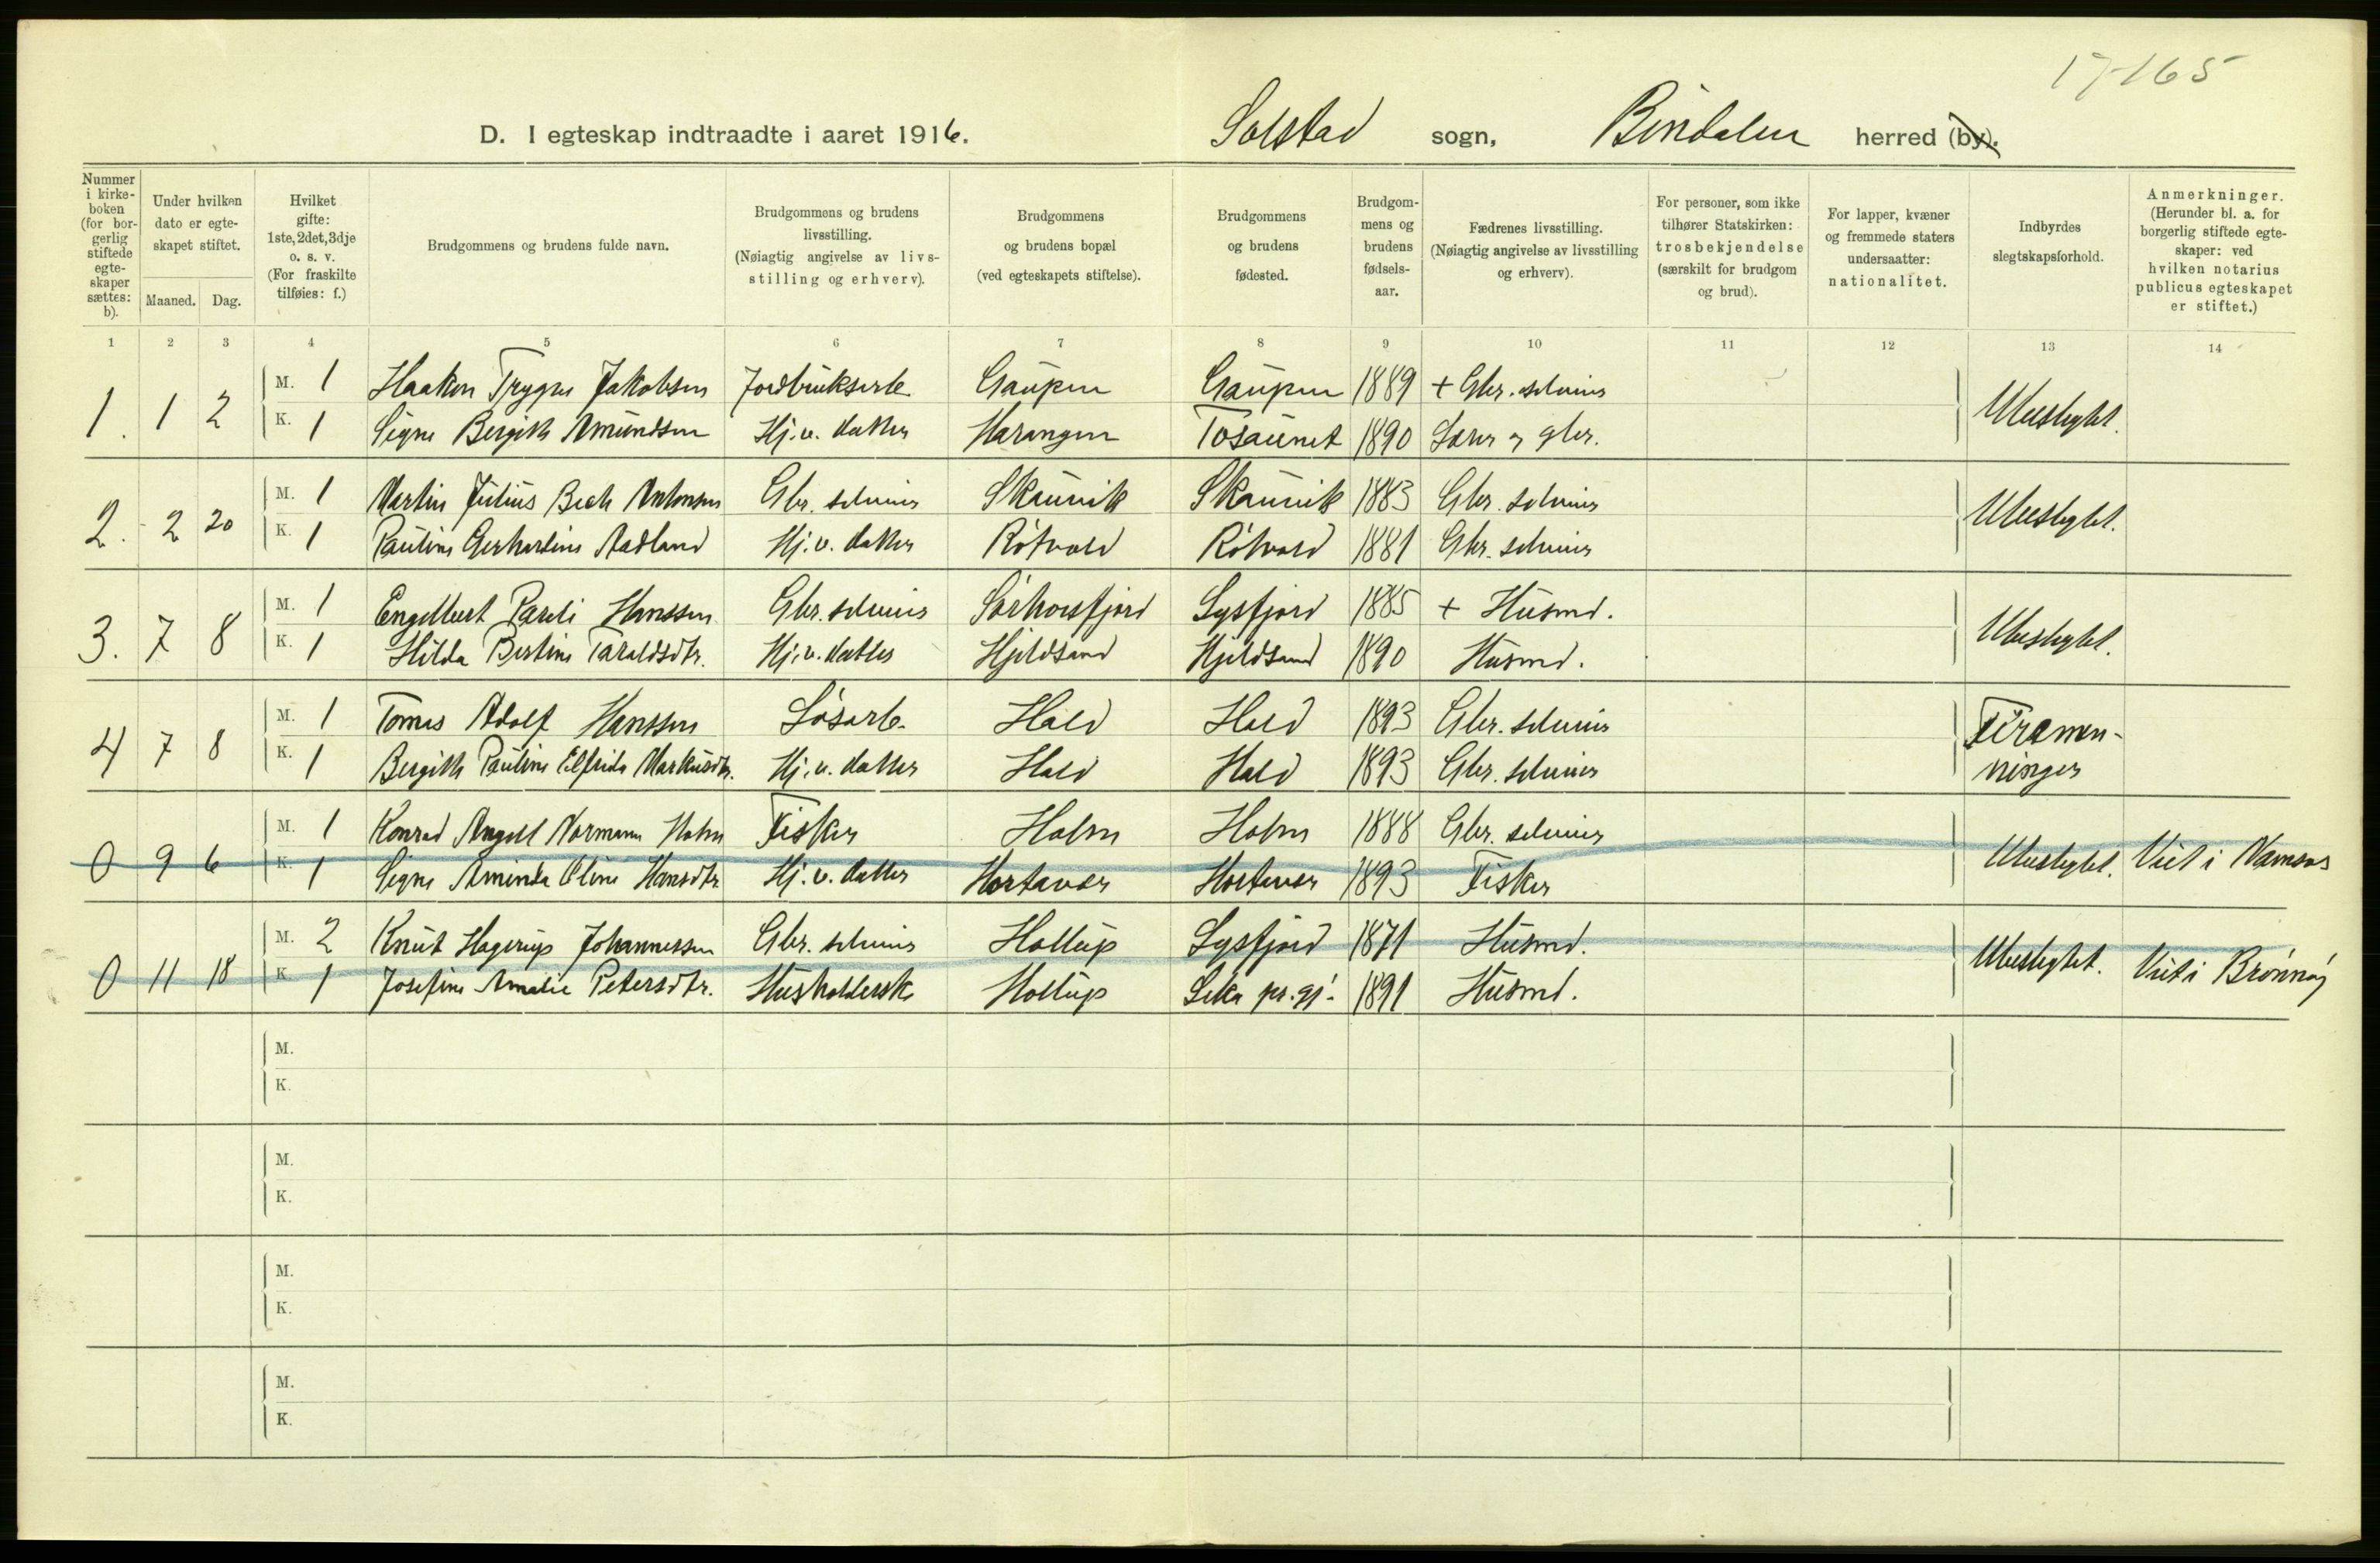 17-165
D. I egteskap indtraadte i aaret 1916. Solstad sogn, Bindalen herred (by).
Nummer i kirke-boken (for bor-gerlig stiftede egte-skaper sættes: b).
Under hvilken dato er egte-skapet stiftet.
Maaned. Dag.
Hvilket gifte: 1ste, 2det, 3dje o. s. v. (For fraskilte tilføies: f.)
Brudgommens og brudens fulde navn.
Brudgommens og brudens livsstilling. (Nøiagtig angivelse av livs-stilling og erhverv).
Brudgommens og brudens bopæl (ved egteskapets stiftelse).
Brudgommens og brudens fødested.
Brudgom-mens og brudens fødsels-aar.
Fædrenes livsstilling. (Nøiagtig angivelse av livsstilling og erhverv).
For personer, som ikke tilhører Statskirken: trosbekjendelse (særskilt for brudgom og brud).
For lapper, kvæner og fremmede staters undersaatter: nationalitet.
Indbyrdes slegtskapsforhold.
Anmerkninger. (Herunder bl. a. for borgerlig stiftede egte-skaper: ved hvilken notarius publicus egteskapet er stiftet.)
1 2 3 4 5 6 7 8 9 10 11 12 13 14
M. 1 Haakon Trygve Jakobsen Jordbruksarb. Gaupen Gaupen 1889 + Gbr. selveier
1. 1 2 Ubeslegtet.
K. 1 Signe Bergith Amundsen Hj.v. datter Harangen Tosaunet 1890 Lærer og gbr.
M. 1 Martin Julius Bech Antonsen Gbr. selveier Skaurvik Skaurvik 1883 Gbr. selveier
2. 2 20 Ubeslegtet.
K. 1 Pauline Gerhardine Aadland Hj.v. datter Røtvold Røtvold 1881 Gbr. selveier
M. 1 Engelbert Pareli Hanssen Gbr. selveier Sørhorsfjord Lysfjord 1885 + Husmd.
3. 7 8 Ubeslegtet.
K. 1 Hilda Bertine Taraldsdtr. Hj.v. datter Hjeldsand Hjeldsand 1890 Husmd.
M. 1 Tomas Adolf Hanssen Løsarb. Hald Hald 1893 Gbr. selveier
4 7 8 Firemen-ninger
K. 1 Bergith Pauline Elfrida Markusdtr. Hj.v. datter Hald Hald 1893 Gbr. selveier
M. 1 Konrad Angell Normann Holm Fisker Holm Holm 1888 Gbr. selveier
0 9 6 Ubeslegtet. Viet i Namsos
K. 1 Signe Aminda Oline Hansdtr Hj.v. datter Hortavær Hortavær 1893 Fisker
M. 2 Knut Hagerup Johannessen Gbr. selveier Hollup Lysfjord 1871 Husmd.
0 11 18 Ubeslegtet. Viet i Brønnøy
K. 1 Josefine Amalie Petersdtr. Husholdersk. Hollup Leka pr.gj. 1891 Husmd.
M.
K.
M.
K.
M.
K.
M.
K.